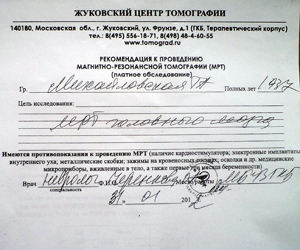 ЖУКОВСКИЙ ЦЕНТР ТОМОГРАФИИ
140180, Московская обл., г. Жуковский, ул. Фрунзе, д.1 (ГКБ, Терапевтический корпус)
тел.: 8(495) 556-18-71, 8(498) 48-4-60-55
www.tomograd.ru
РЕКОМЕНДАЦИЯ К ПРОВЕДЕНИЮ
МАГНИТНО-РЕЗОНАНСНОЙ ТОМОГРАФИИ (МРТ)
(платное обследование)
Гр. Михайловская ТА Полных лет 1987
Цель исследования:
МРТ головного мозга
Имеются противопоказания к проведению МРТ (наличие кардиостимулятора; электронные импланты
внутреннего уха; металлические скобки; зажимы на кровеносных сосудах; осколки и др. медицинские
микроприборы, вживленные в тело, а также первые два месяца беременности)
Врач невролог Ф.И.О.
31 01 201